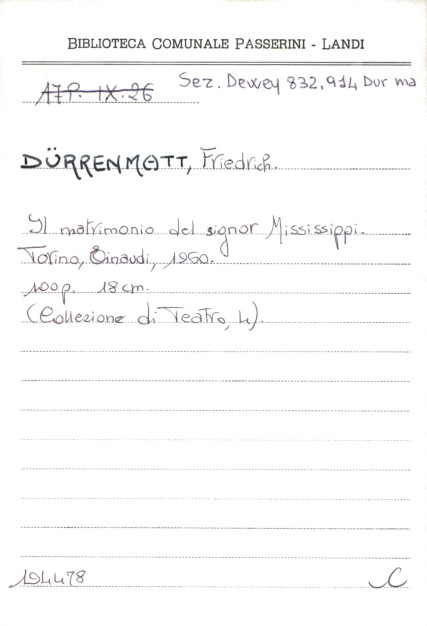 BIBLIOTECA COMUNALE PASSERINI - LANDI
A7P. IX. 26 Sez. Dewey 832.914 Dur ma
DÜRRENMATT, Friedrich.
Il matrimonio del signor Mississippi.
Torino, Einaudi, 1960.
100p. 18 cm.
(Collezione di Teatro, 4).
194478 C